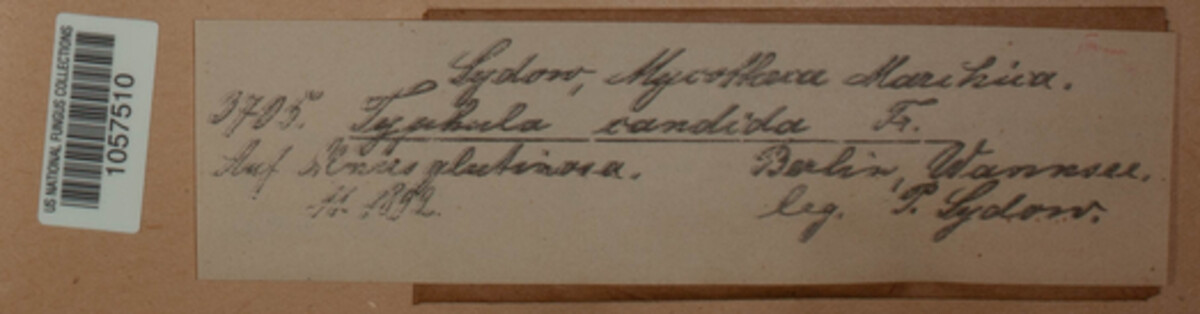 US NATIONAL FUNGUS COLLECTIONS
10575510
Sydow, Mycotheca Marchica.
3705. Typhula candida Fr.
Auf Alnus glutinosa. Berlin, Wannsee.
11. 1892. leg. P. Sydow.